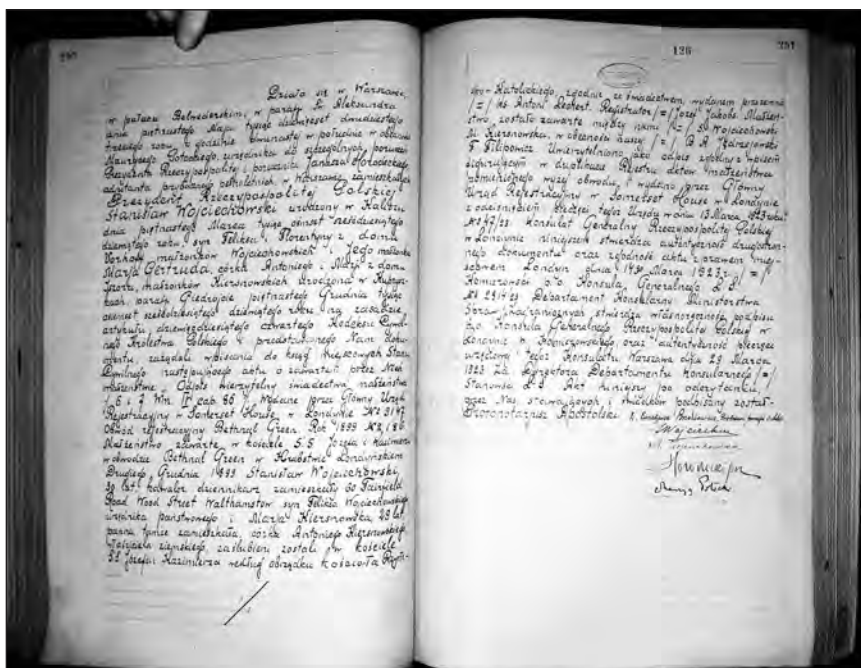 250
Działo się w Warszawie,
w pałacu Belwederskim, w parafji Św. Aleksandra
dnia piętnastego Maja tysiąc dziewięćset dwudziestego
trzeciego roku o godzinie w południe w obecności
Maurycego Potockiego, urzędnika do szczególnych poruczeń
Prezydenta Rzeczypospolitej i porucznika
adjutanta pełnoletnich w Warszawie zamieszkałych
Prezydent Rzeczypospolitej Polskiej
Stanisław Wojciechowski urodzony w Kaliszu
dnia piętnastego Marca tysiąc ośmset sześćdziesiątego
dziewiątego roku, syn Feliksa i Florentyny z domu
Vorhoff małżonków Wojciechowskich i Jego małżonka
Marja Gertruda, córka Antoniego i Marji z domu
małżonków Kiersnowskich urodzona w
parafji Giedrojcie piętnastego Grudnia tysiąc
ośmset sześćdziesiątego dziewiątego roku na zasadzie
artykułu dziewięćdziesiątego czwartego Kodeksu Cywil-
nego Królestwa Polskiego i przedstawionego Nam doku-
mentu, zażądali wpisania do ksiąg miejscowych Stanu
Cywilnego następującego aktu o zawartem przez Nich
małżeństwie. Odpis wierzytelny świadectwa małżeństwa
/ 6 i 7 Wm. IV cap. 86 / Wydane przez Główny Urząd
Rejestracyjny w Somerset House, w Londynie № 3147
Obwód rejestracyjny Bethnal Green. Rok 1899 № 186
Małżeństwo zawarte w kościele S.S. Józefa i Kazimierza
w obwodzie Bethnal Green w Hrabstwie Londyńskiem
Drugiego Grudnia 1899 Stanisław Wojciechowski,
30 lat kawaler dziennikarz zamieszkały 60 Fairfield
Road Wood Street Walthamstow syn Feliksa Wojciechowskiego
urzędnika państwowego i Marja Kiersnowska 29 lat
panna tamże zamieszkała, córka Antoniego Kiersnowskiego
właściciela ziemskiego, zaślubieni zostali w kościele
SS Józefa i Kazimierza według obrządku Kościoła Rzym-
126
251
sko-Katolickiego, zgodnie ze świadectwem, wydanem przezemnie
/=/ Ks. Antoni Lechert. Registrator /=/ Józef Jakobs. Małżeń-
stwo zostało zawarte między nami /=/ St Wojciechowski
M. Kiersnowska, w obecności naszej /=/ B. A. Jędrzejowski
T. Filipowicz Uwierzytelniono jako odpis zgodny z wpisem
figurującym w duplikacie Rejestru aktów małżeństwa
pomienionego wyżej obwodu, i wydano przez Główny
Urząd Rejestracyjny w Somerset House w Londynie
z odciśnięciem pieczęci tegoż Urzędu w dniu 13 Marca 1923 roku
Konsulat Generalny Rzeczypospolitej Polskiej
w Londynie niniejszem stwierdza autentyczność drugostron-
nego dokumentu oraz zgodność aktu z prawem miej-
scowem Londyn dnia Marca 1923 r /=/
Komierowski p/o Konsula Generalnego L.S.
Departament Konsularny Ministerstwa
Spraw Zagranicznych stwierdza własnoręczność podpisu
p.o. Konsula Generalnego Rzeczypospolitej Polskiej w
Londynie oraz autentyczność pieczęci
urzędowej tegoż Konsulatu Warszawa dnia 29 Marca
1923 Za Dyrektora Departamentu Konsularnego /=/
L.S. Akt niniejszy po odczytaniu,
przez Nas, stawających i świadków podpisany został-
Protonotarjusz Apostolski